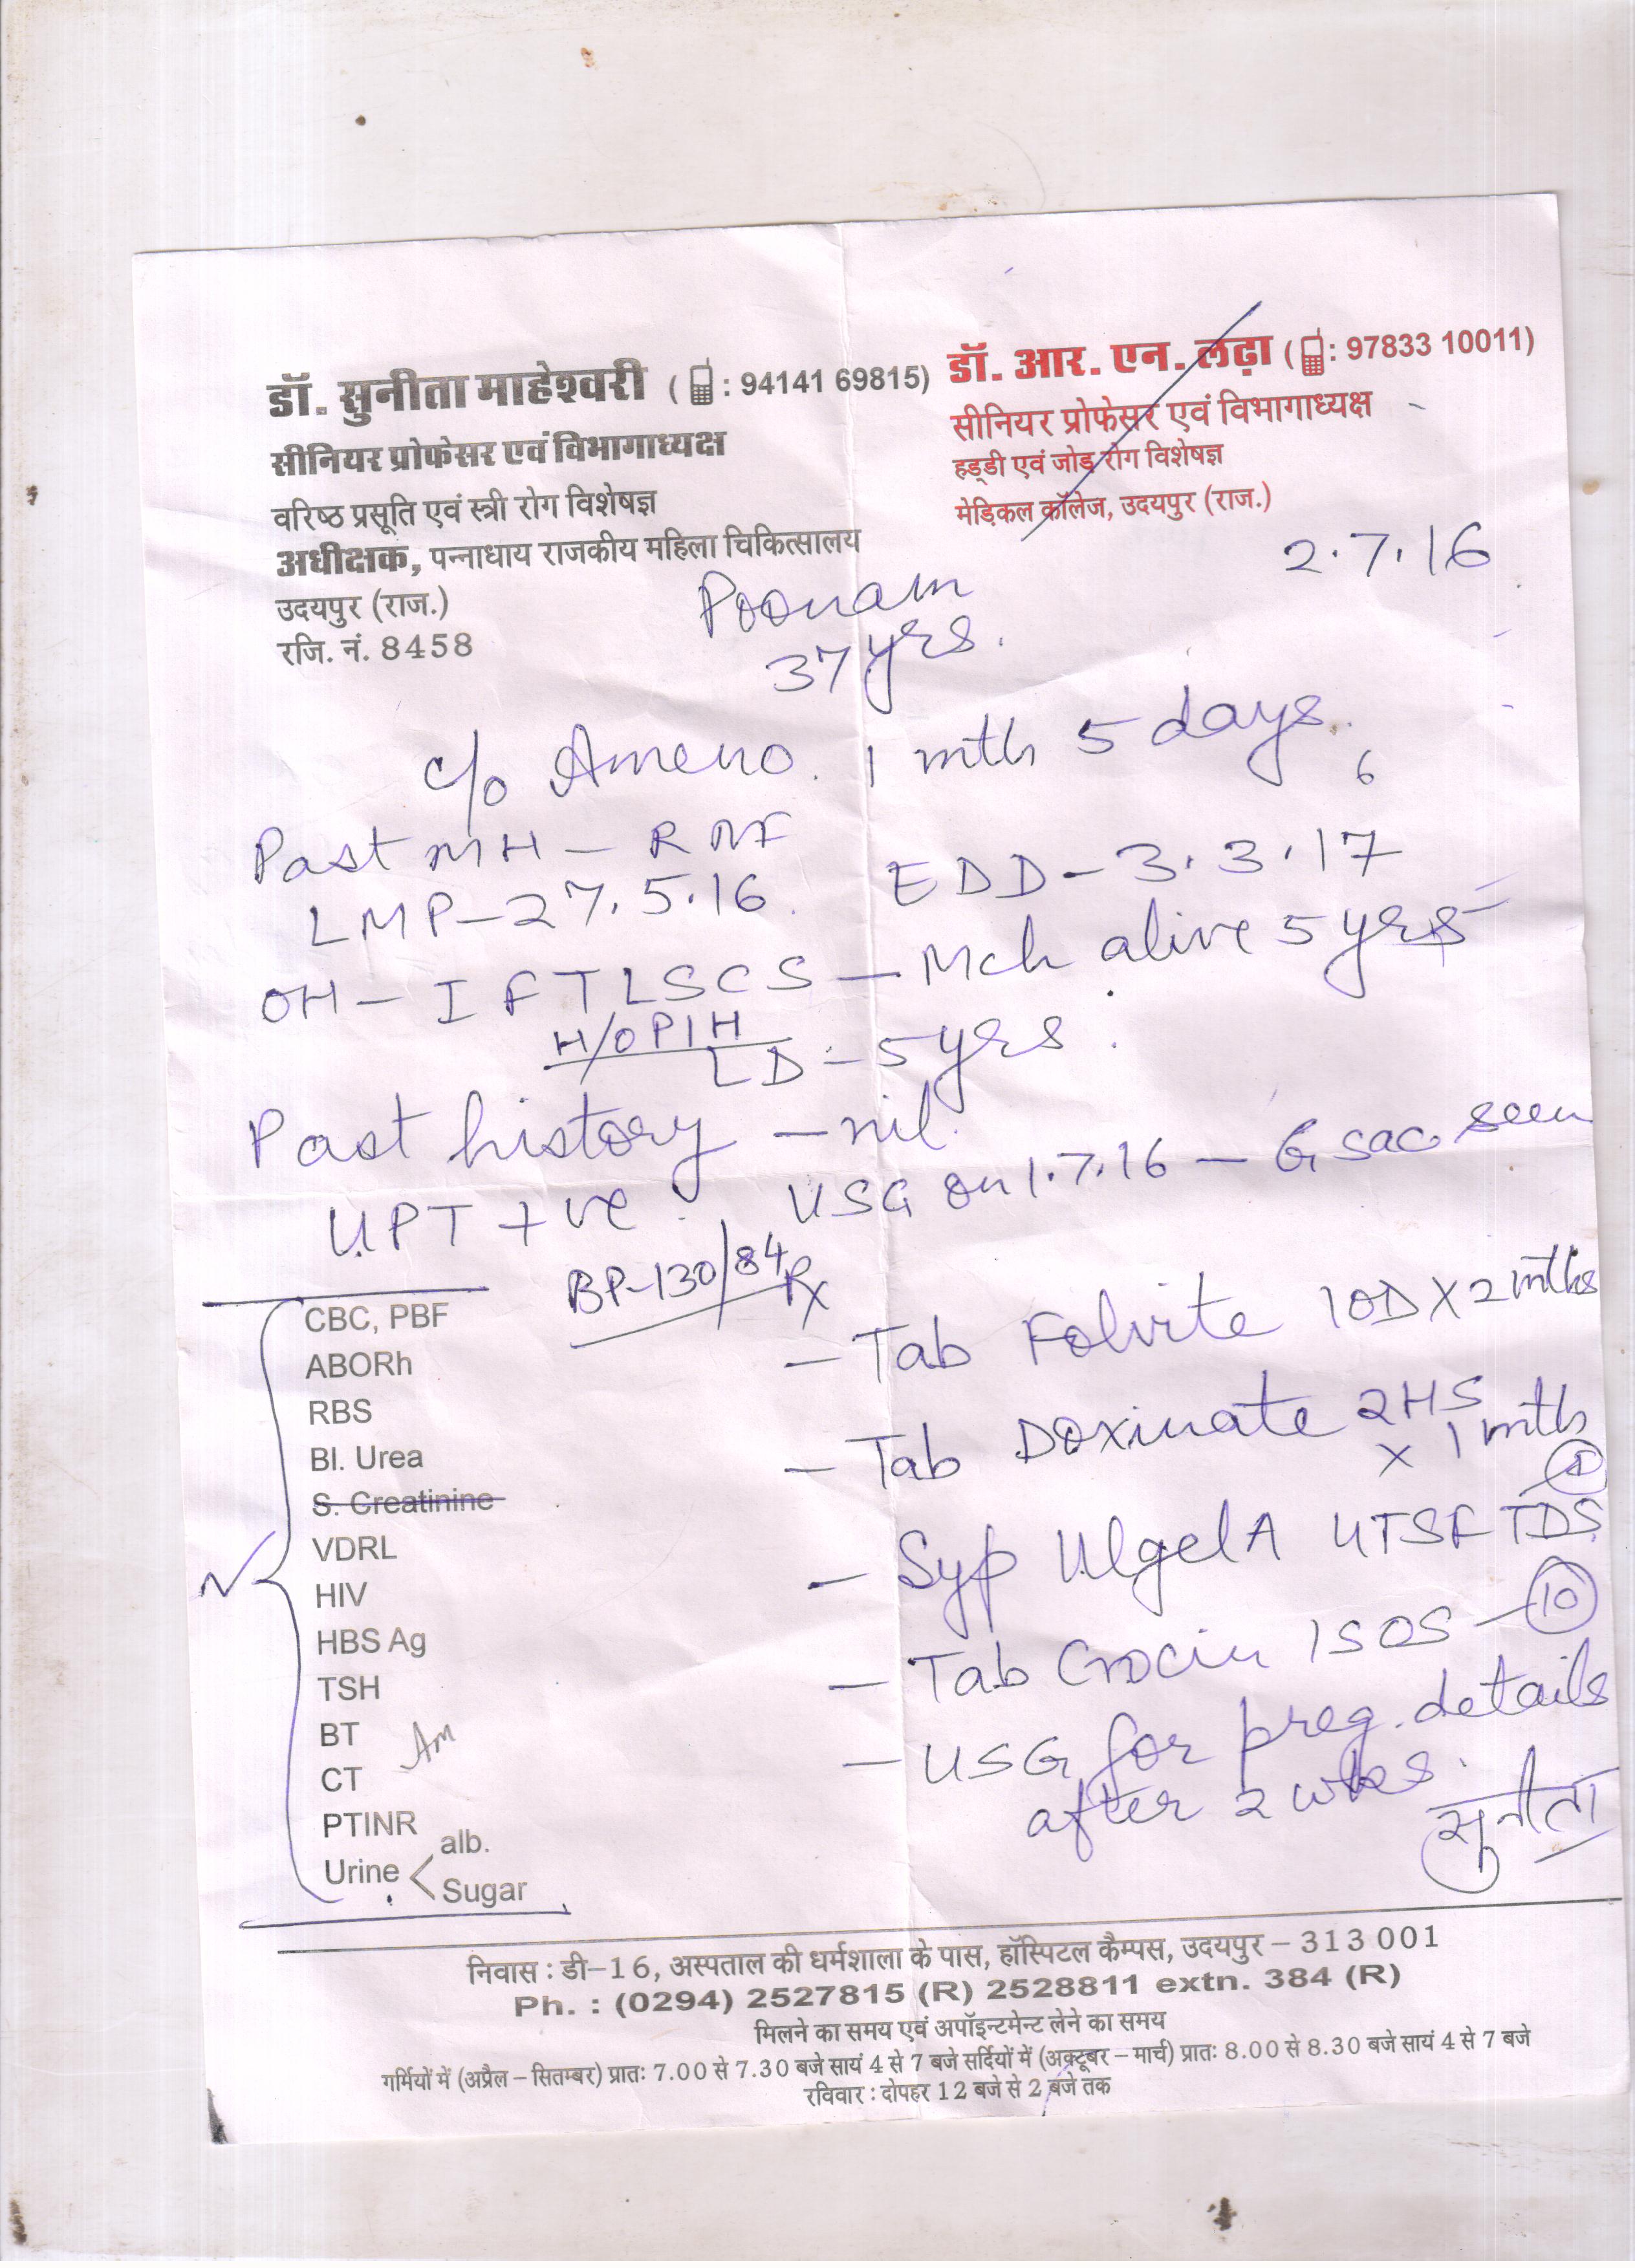 डॉ. सुनीता माहेश्वरी ( : 94141 69815)
सीनियर प्रोफेसर एवं विभागाध्यक्ष
वरिष्ठ प्रसूति एवं स्त्री रोग विशेषज्ञ
अधीक्षक, पन्नाधाय राजकीय महिला चिकित्सालय
उदयपुर (राज.)
रजि. नं. 8458
डॉ. आर. एन. लढ़ा ( : 97833 10011)
सीनियर प्रोफेसर एवं विभागाध्यक्ष
हड्डी एवं जोड़ रोग विशेषज्ञ
मेडिकल कॉलेज, उदयपुर (राज.)
2.7.16
Poonam
37 yrs.
c/o Ameno. 1 mth 5 days.
6
Past MH – RNF
LMP – 27.5.16. EDD – 3.3.17
OH – I FTLSCS – Mch alive 5 yrs
H/O PIH
LD – 5 yrs.
Past history – nil.
UPT +ve. USG on 1.7.16 – G sac seen
BP-130/84
Rx
– Tab Folvite 1OD X 2 mths
– Tab Doxinate 2HS
x 1 mth
– Syp Ulgel A UTSF TDS
– Tab Crocin 1SOS – 10
– USG for preg. details
after 2 wks.
सुनीता
CBC, PBF
ABORh
RBS
Bl. Urea
S. Creatinine
VDRL
HIV
HBS Ag
TSH
BT
CT
PTINR
Urine < alb.
Sugar
निवास : डी–16, अस्पताल की धर्मशाला के पास, हॉस्पिटल कैम्पस, उदयपुर – 313 001
Ph. : (0294) 2527815 (R) 2528811 extn. 384 (R)
मिलने का समय एवं अपॉइन्टमेन्ट लेने का समय
गर्मियों में (अप्रैल – सितम्बर) प्रातः 7.00 से 7.30 बजे सायं 4 से 7 बजे सर्दियों में (अक्टूबर – मार्च) प्रातः 8.00 से 8.30 बजे सायं 4 से 7 बजे
रविवार : दोपहर 12 बजे से 2 बजे तक